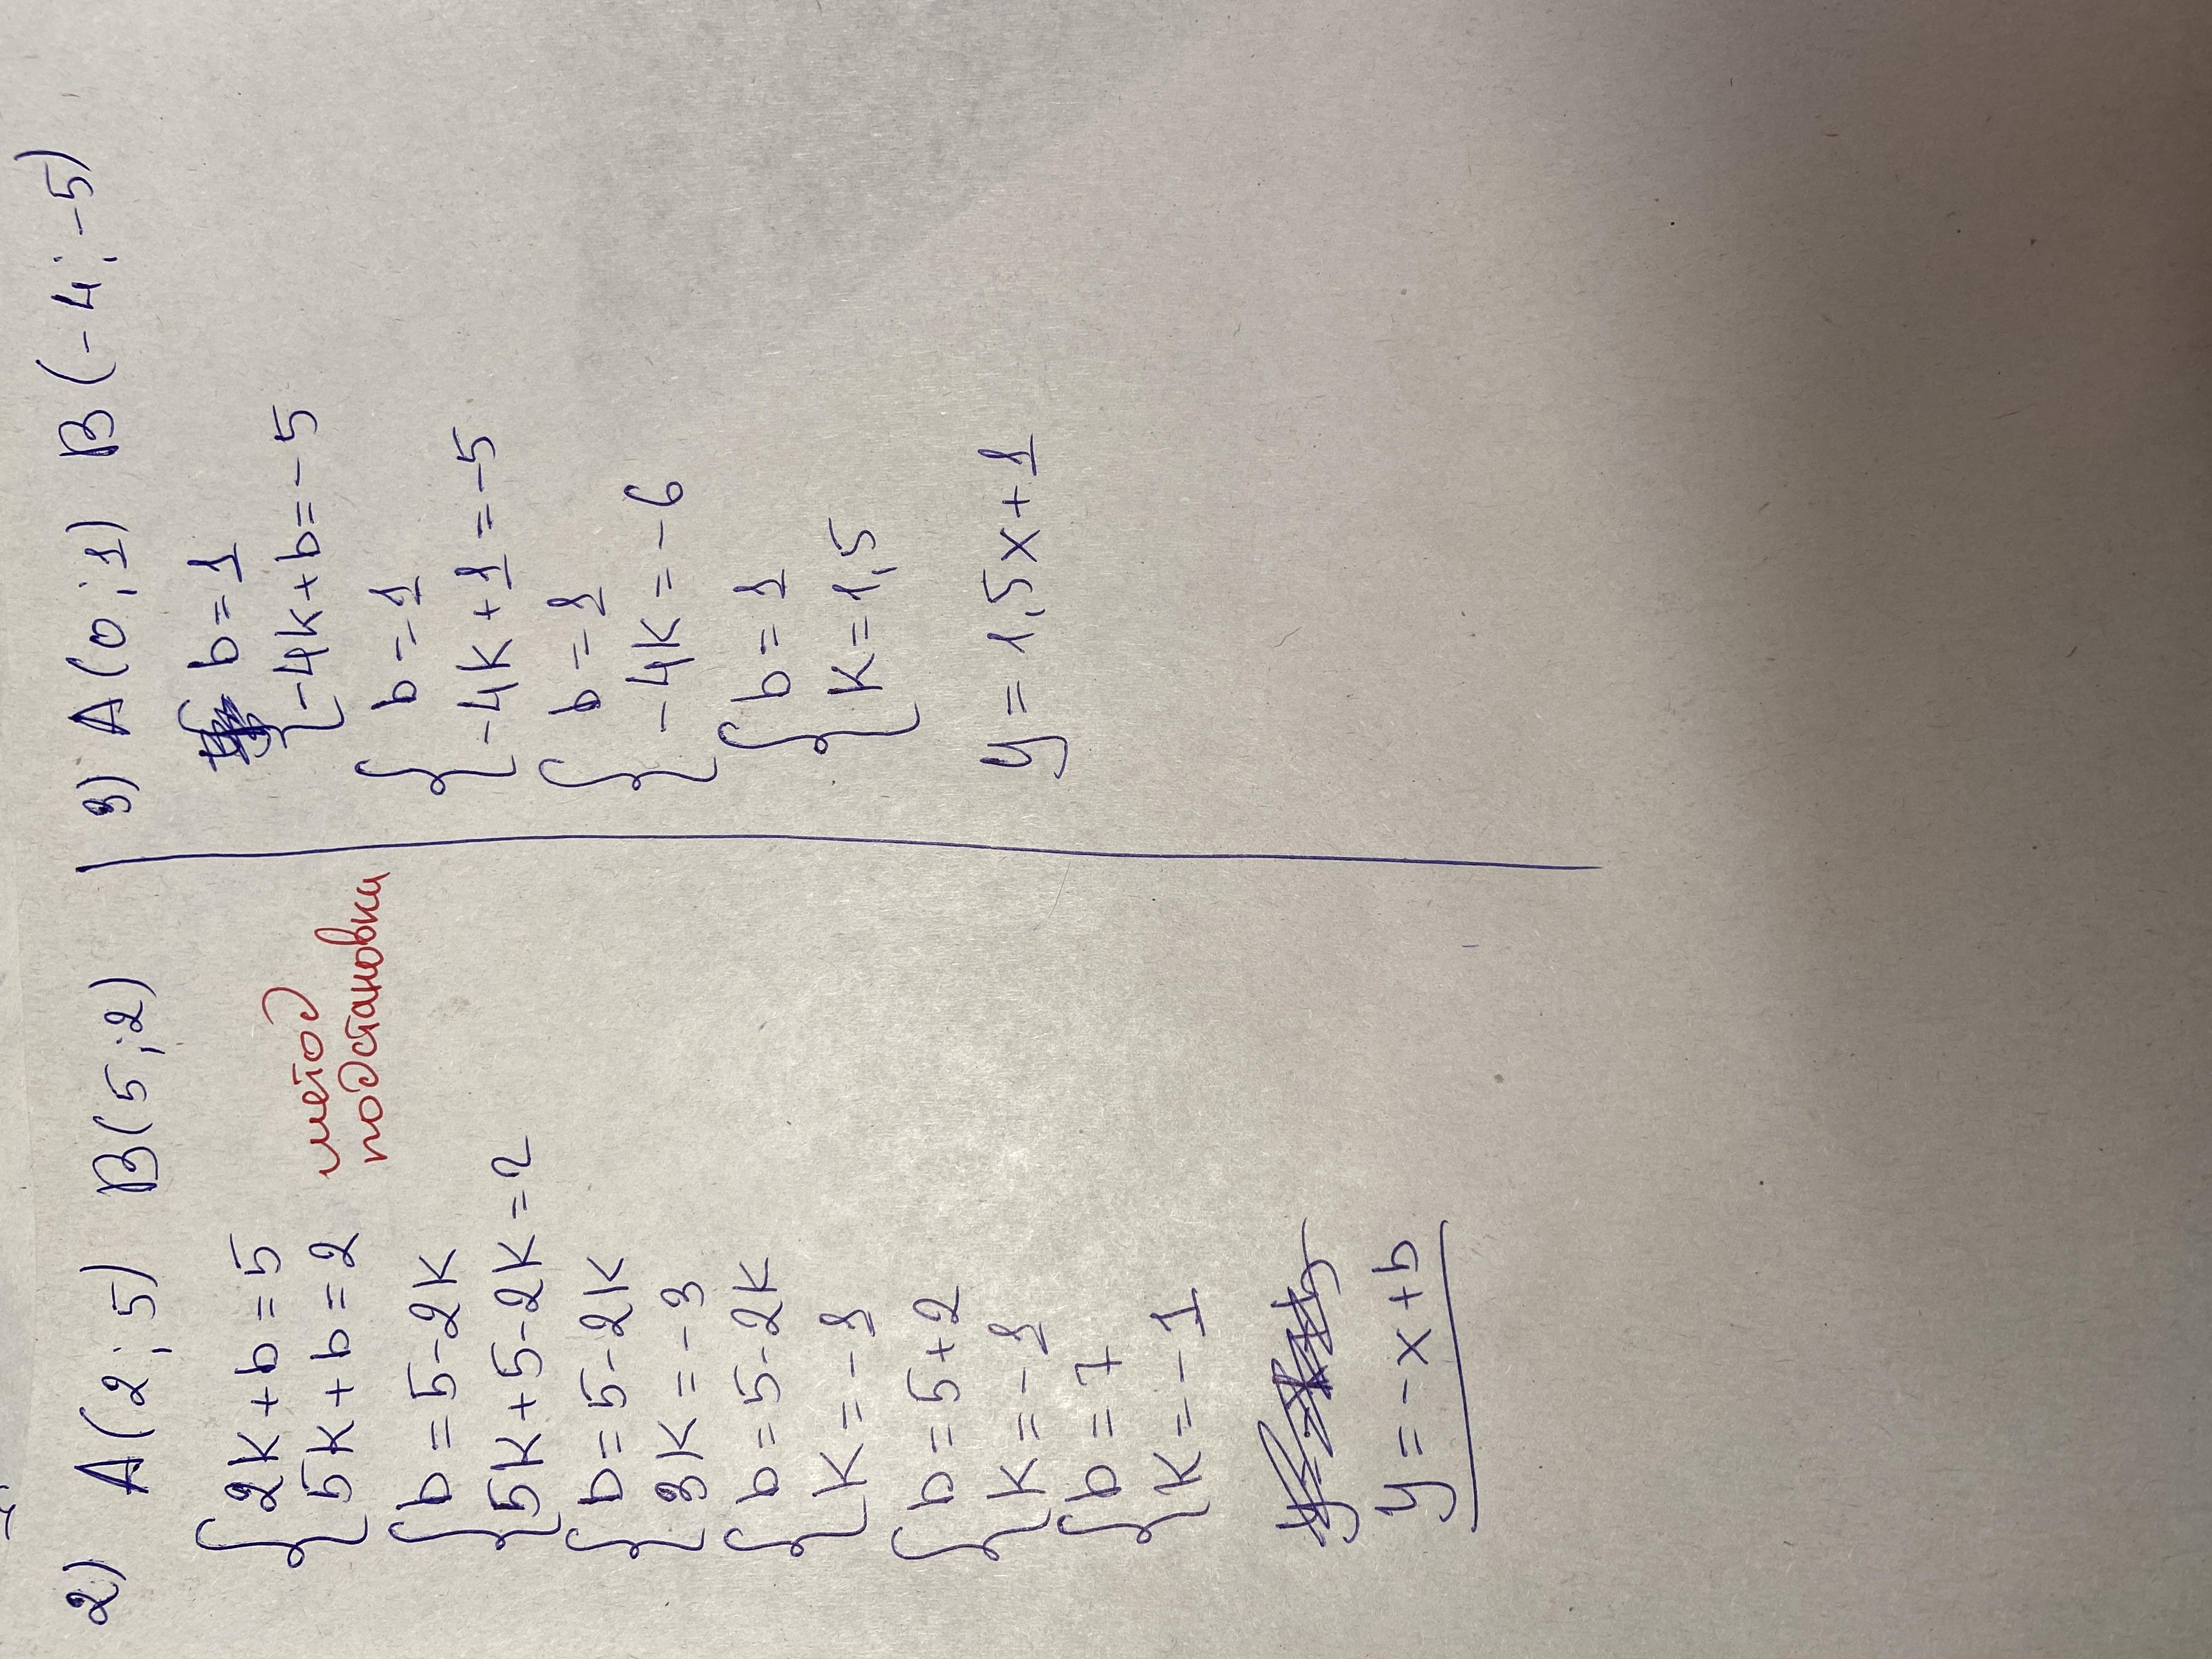 2) A(2;5) B(5;2)
2k+b=5
5k+b=2
метод
подстановки
b=5-2k
5k+5-2k=2
b=5-2k
3k=-3
b=5-2k
k=-1
b=5+2
k=-1
b=7
k=-1
y=-x+b
3) A(0;1) B(-4;-5)
b=1
-4k+b=-5
b=1
-4k+1=-5
b=1
-4k=-6
b=1
k=1,5
y=1,5x+1